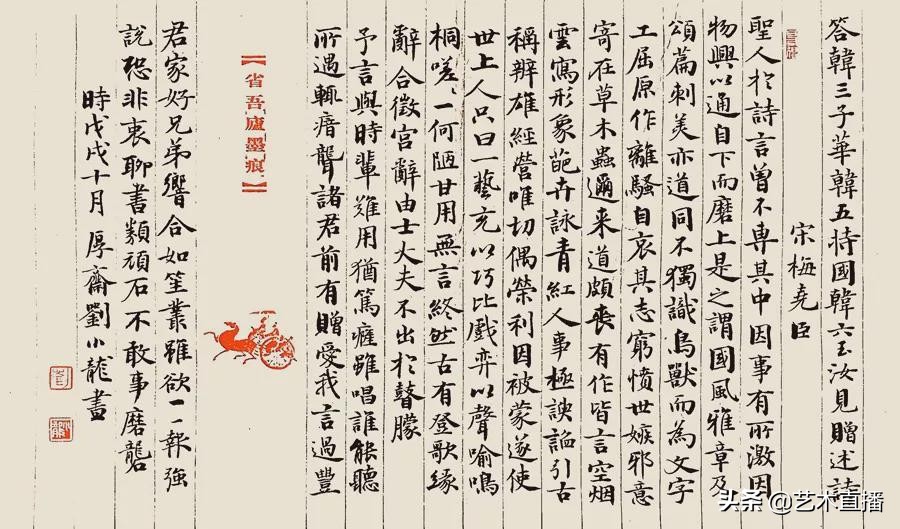 答韓三子華韓五持國韓六玉汝見贈述詩
宋梅堯臣
聖人於詩言曾不專其中因事有所激因
物興以通自下而磨上是之謂國風雅章及
頌篇刺美亦道同不獨識鳥獸而為文字
工屈原作離騷自哀其志窮憤世嫉邪意
寄在草木蟲邇来道頗喪有作皆言空烟
雲寫形象葩卉詠青紅人事極諛諂引古
稱辨雄經營唯切偶榮利因被蒙遂使
世上人只曰一藝充以巧比戲弈以聲喻鳴
桐嗟〻一何陋甘用無言終然古有登歌緣
辭合徵宮辭由士大夫不出於瞽矇
予言與時輩難用猶篤癃雖唱誰能聽
所遇輒瘖聾諸君前有贈愛我言過豐
【省吾廬墨痕】
君家好兄弟響合如笙叢雖欲一一報強
說恐非衷聊書類頑石不敢事磨礱
時戊戌十月 厚齋劉小龍書
头条 @艺术直播